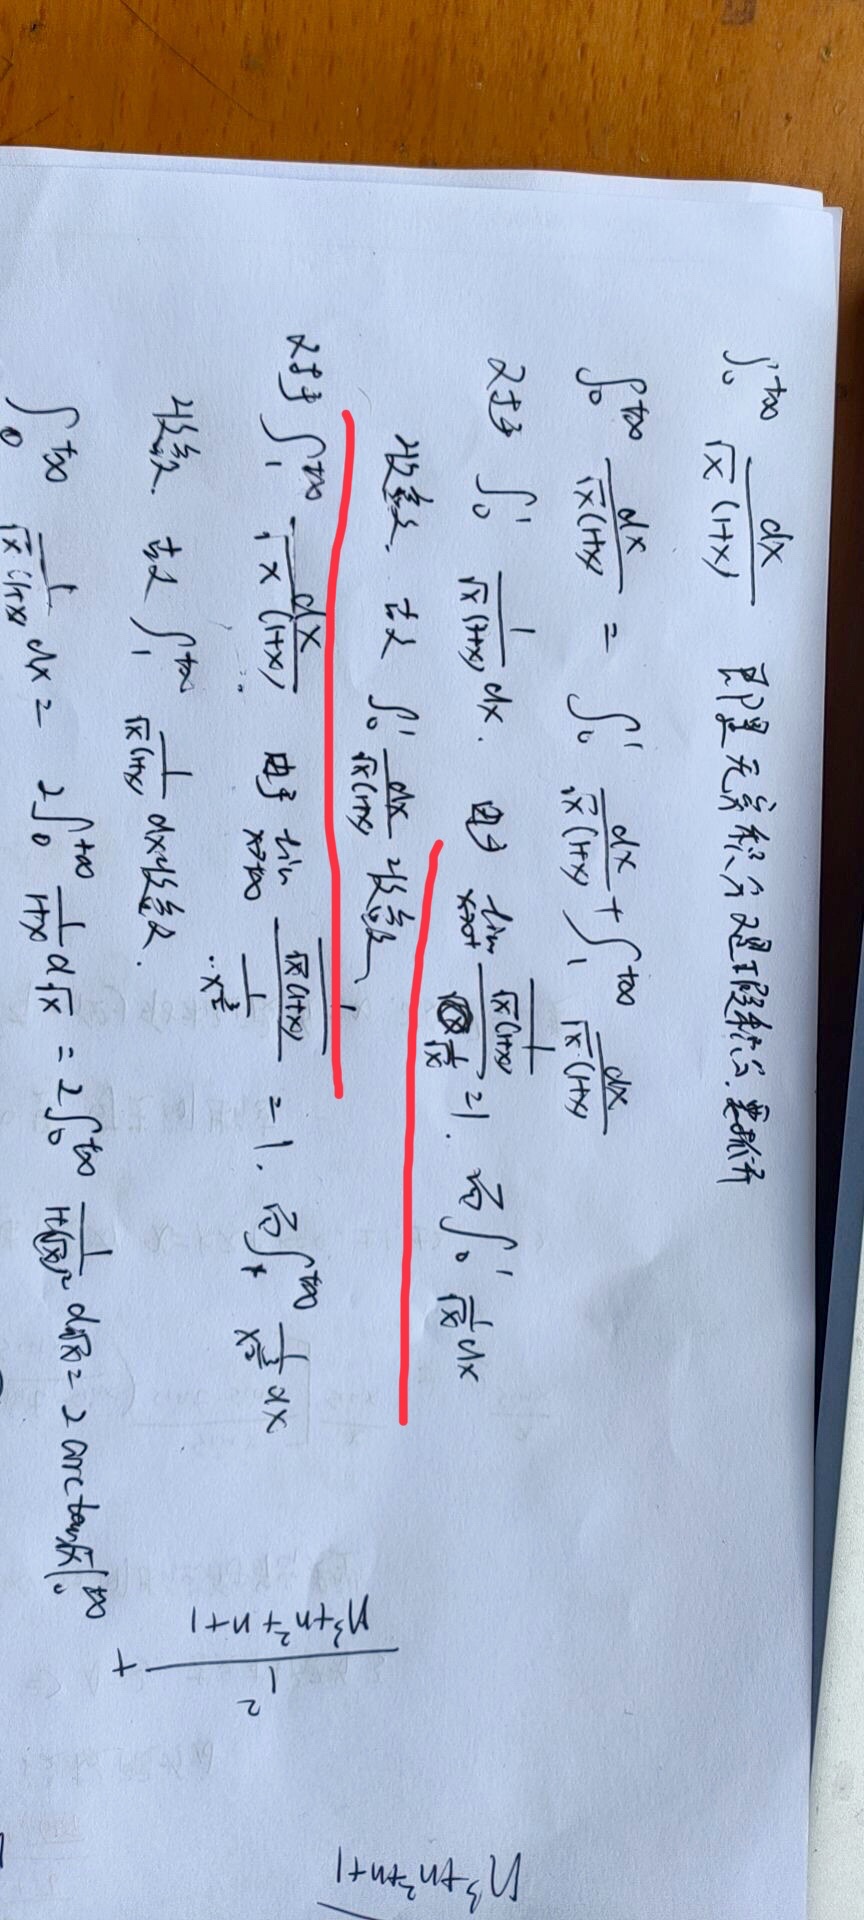 ∫₀^{+∞} dx/(√x(1+x)) 即是无穷积分又是瑕积分. 要拆开
∫₀^{+∞} dx/(√x(1+x)) = ∫₀¹ dx/(√x(1+x)) + ∫₁^{+∞} dx/(√x·(1+x))
对于 ∫₀¹ 1/(√x(1+x)) dx. 由于 lim_{x→0⁺} (1/(√x(1+x)))/(1/√x) = 1. 而 ∫₀¹ 1/√x dx
收敛. 故 ∫₀¹ dx/(√x(1+x)) 收敛,
对于 ∫₁^{+∞} dx/(√x(1+x)). 由于 lim_{x→+∞} (1/(√x(1+x)))/(1/x^{3/2}) = 1. 而 ∫₁^{+∞} 1/x^{3/2} dx
收敛. 故 ∫₁^{+∞} 1/(√x(1+x)) dx 收敛.
∫₀^{+∞} 1/(√x·(1+x)) dx = 2∫₀^{+∞} 1/(1+x) d√x = 2∫₀^{+∞} 1/(1+(√x)²) d(√x) = 2 arctan√x |₀^{+∞}
1²/(n³+n²+n+1) +
n³+n²+n+1